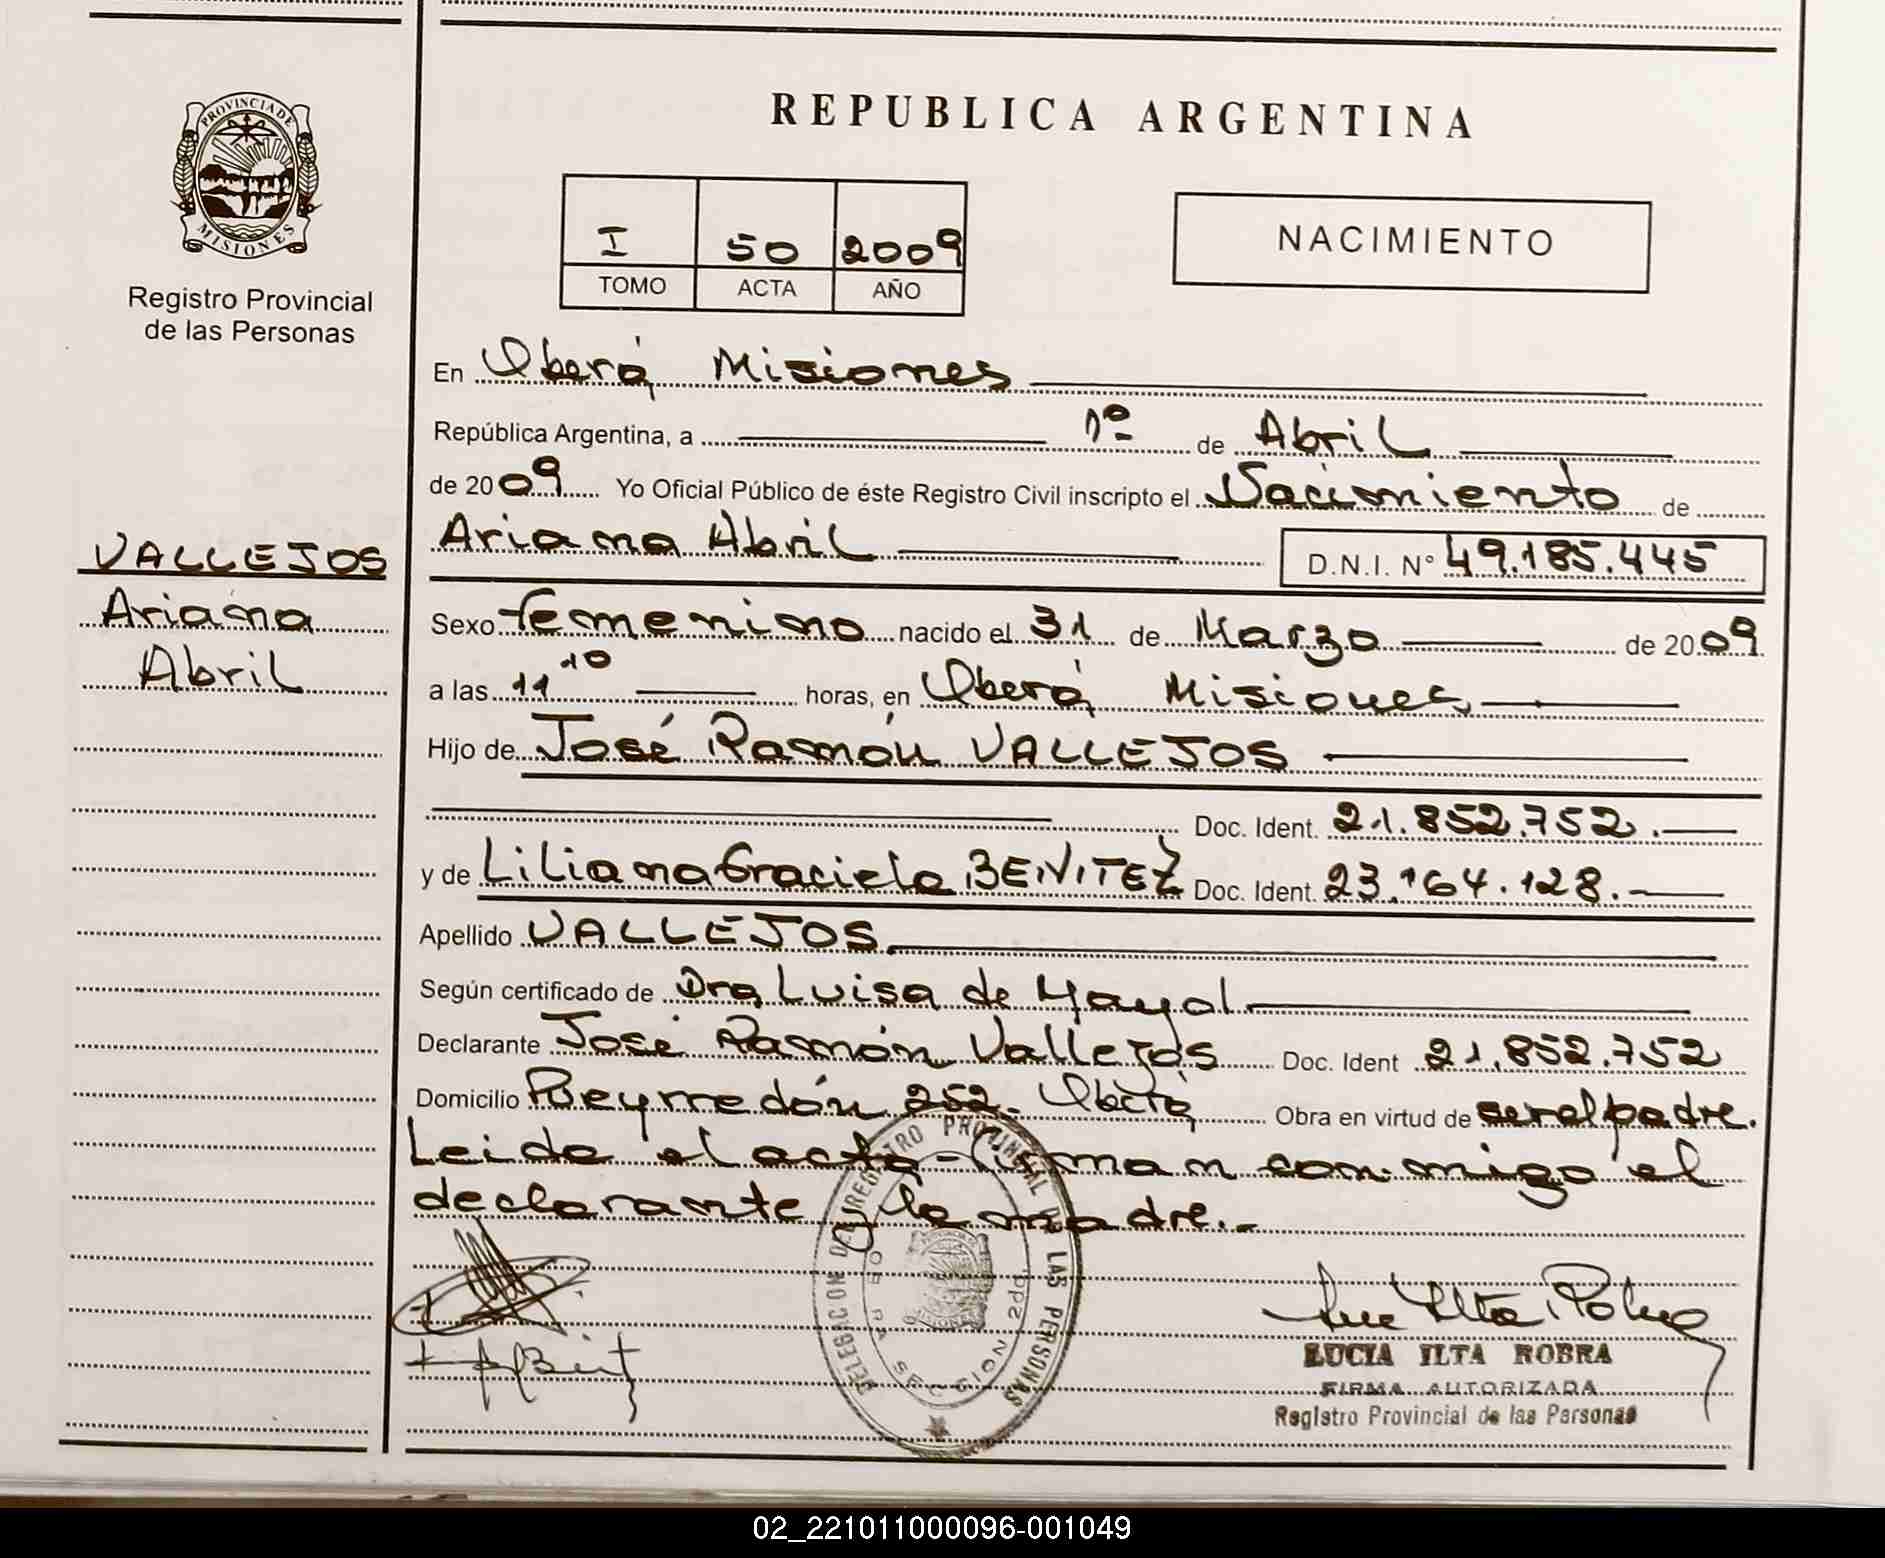 PROVINCIA DE
MISIONES
Registro Provincial
de las Personas
VALLEJOS
Ariana
Abril
REPUBLICA ARGENTINA
I 50 2009
TOMO ACTA AÑO
NACIMIENTO
En Oberá Misiones
República Argentina, a 1º de Abril
de 2009 Yo Oficial Público de éste Registro Civil inscripto el Nacimiento de
Ariana Abril D.N.I. N° 49.185.445
Sexo femenino nacido el 31 de Marzo de 2009
a las 11 10 horas, en Oberá Misiones
Hijo de José Ramón VALLEJOS
Doc. Ident. 21.852.752.
y de Liliana Graciela BENITEZ Doc. Ident. 23.164.128.-
Apellido VALLEJOS
Según certificado de Dra Luisa de Mayol
Declarante José Ramón Vallejos Doc. Ident 21.852.752
Domicilio Pueyrredón 252. Oberá Obra en virtud de ser el padre.
Leida el acta - firman conmigo el
declarante y la madre.-
DELEGACION DEL REGISTRO PROVINCIAL DE LAS PERSONAS
SECCION 2da.
LUCIA ILTA ROBRA
FIRMA AUTORIZADA
Registro Provincial de las Personas
02_221011000096-001049